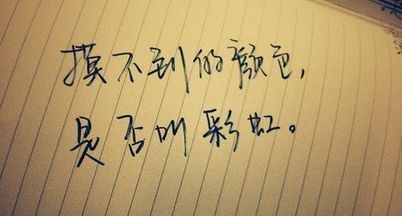 摸不到的颜色，
是否叫彩虹。